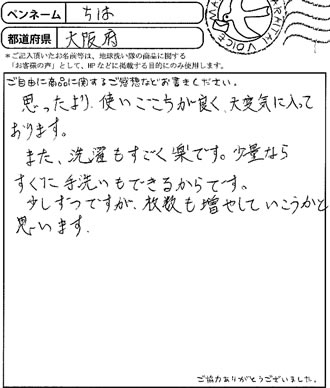 ペンネーム ちは
都道府県 大阪府
＊ご記入頂いたお名前等は、地球洗い隊の商品に関する
「お客様の声」として、HPなどに掲載する目的にのみ使用します。
ご自由に商品に関するご感想などお書きください。
思ったより、使いここちが良く、大変気に入って
おります。
また、洗濯もすごく楽です。少量なら
すぐに手洗いもできるからです。
少しずつですが、枚数も増やしていこうかと
思います。
ご協力ありがとうございました。